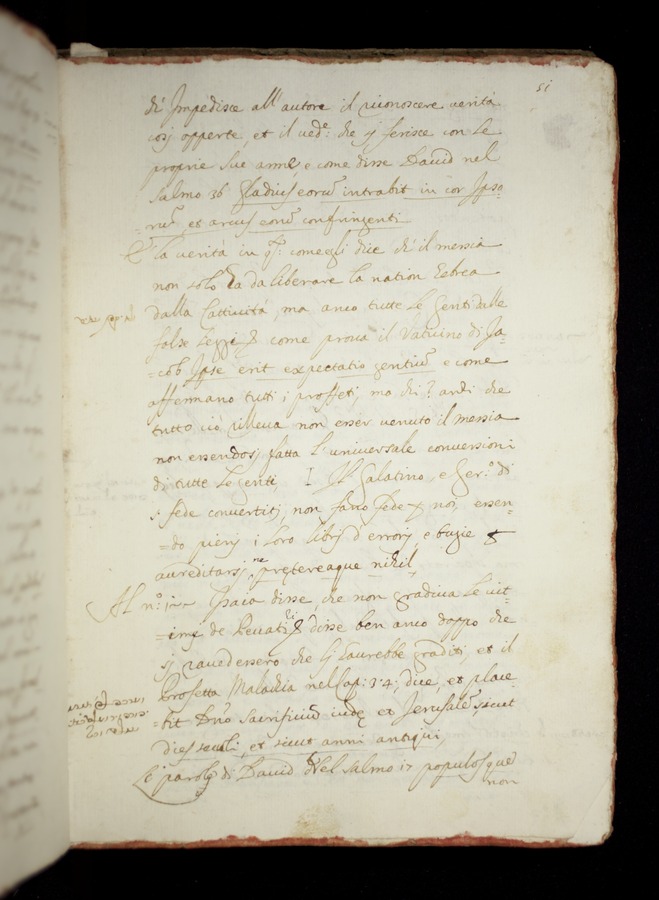 51
di Impedisce all'autore il riconoscere verità
così opperte, et il ved.e che si ferisce con le
proprie sue arme, e come disse David nel
Salmo 36 gladius eorũ intrabit in cor Ipso
=rũ et arcus eorũ confringenti
la verità in q.o: come egli dice ch'il messia
non solo ha da liberare la nation Ebrea
dalla Cattività, ma anco tutte le genti dalle
false leggi come prova il Vaticino di Ja
=cob Ipse erit expectatio gentiũ e come
affermano tutti i proffeti, ma anzi che
tutto ciò rilleva non esser venuto il messia
non essendosi fatta l'universale conversioni
di tutte le genti, Il Galatino, e Ger.o di
S. fede convertiti, non fano fede noi, essen-
=do pieni i loro libri d'errori, e bugie
accreditarsi, ne pretereaque nihil,
Al n.o: Isaia disse, che non gradiva le vit-
=ime de Peccati disse ben anco doppo che
si ravedessero che gl'haurebbe graditi, et il
Profetta Malachia nel Cap: 3.4; dice, et place
=bit Dño sacrifiũ iudę et Jerusalẽ, sicut
dies seculi, et sicut anni antiqui,
Le parole di David Nel salmo 17 populos que
non